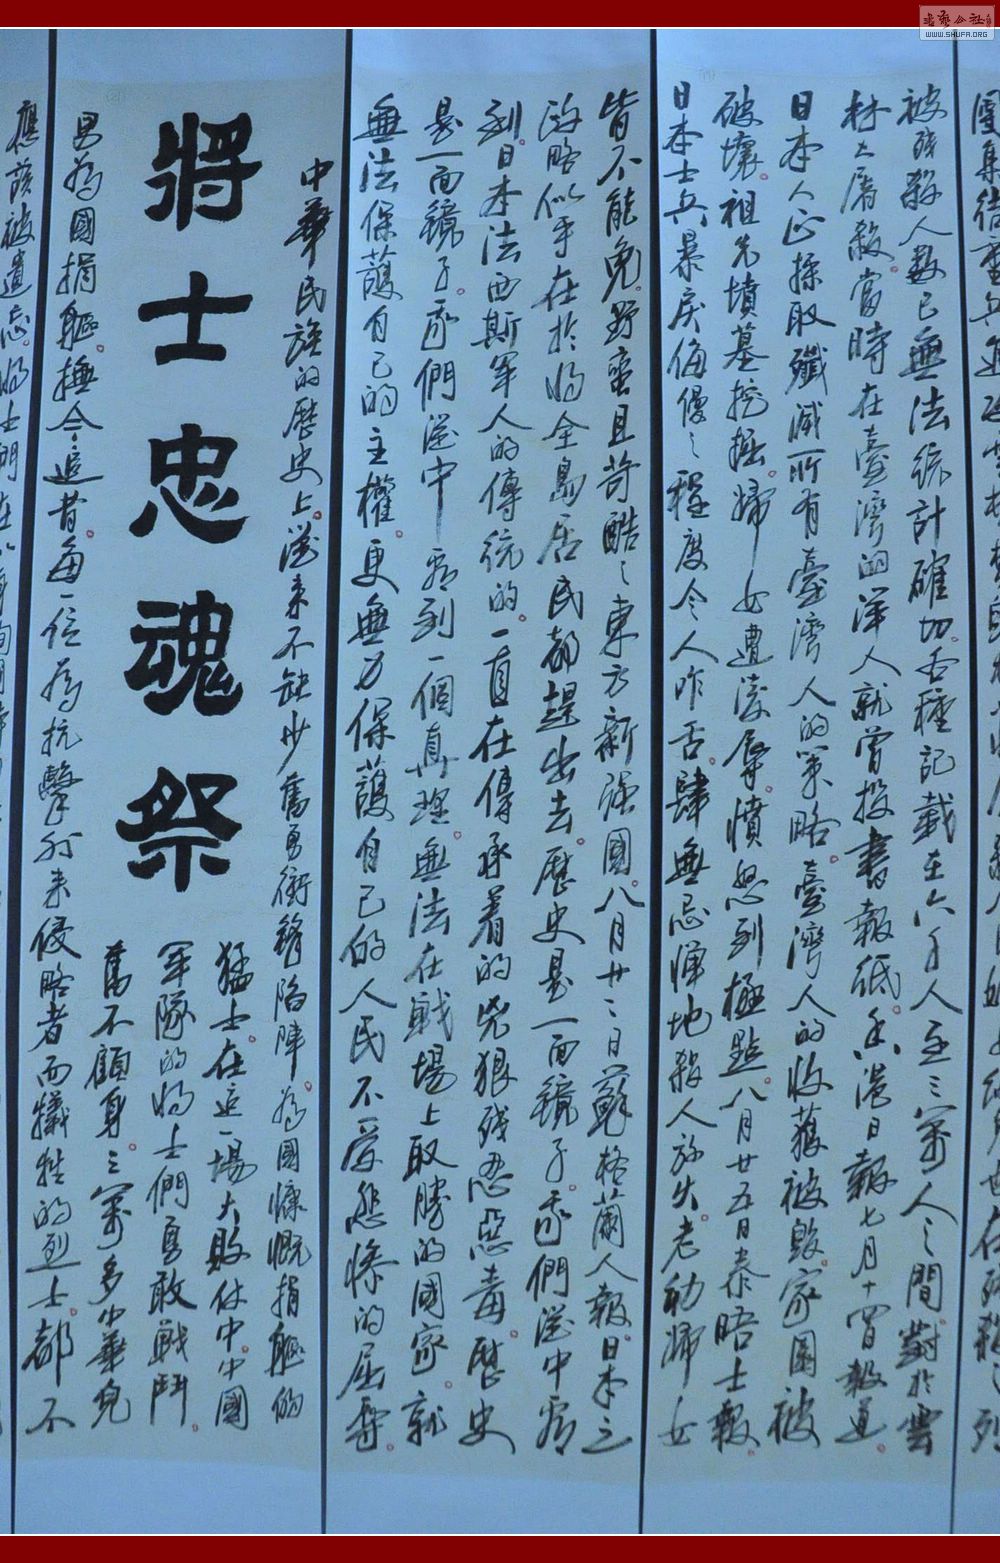 被殘殺人數已無法統計確切各種記載在六千人至三萬人之間對於雲
林大屠殺當時在臺灣的洋人就曾投書報紙香港日報七月十四日報道
日本人正採取殲滅所有臺灣人的策略臺灣人的收穫被毀家園被
破壞祖先墳墓挖掘婦女遭淩辱憤怒到極點八月廿五日泰晤士報
日本士兵暴戾侮慢之程度令人咋舌肆無忌憚地殺人放火老幼婦女
皆不能免野蠻且苛酷之東方新強國八月廿二日蘇格蘭人報日本之
政略似乎在於將全島居民都趕出去歷史是一面鏡子我們從中看
到日本法西斯軍人的傳統的一直在傳承着的兇狠殘忍惡毒歷史
是一面鏡子我們從中看到一個真理無法在戰場上取勝的國家就
無法保護自己的主權更無力保護自己的人民不受悲慘的屈辱
中華民族的歷史上從來不缺少奮勇衝鋒陷陣為國慷慨捐軀的
將士忠魂祭
猛士在這一場大敗仗中中國
軍隊的將士們勇敢戰鬥
奮不顧身三萬多中華兒
男為國捐軀撫今追昔每一位為抗擊外來侵略者而犧牲的烈士都不
應該被遺忘將士們在
WWW.SHUFA.ORG